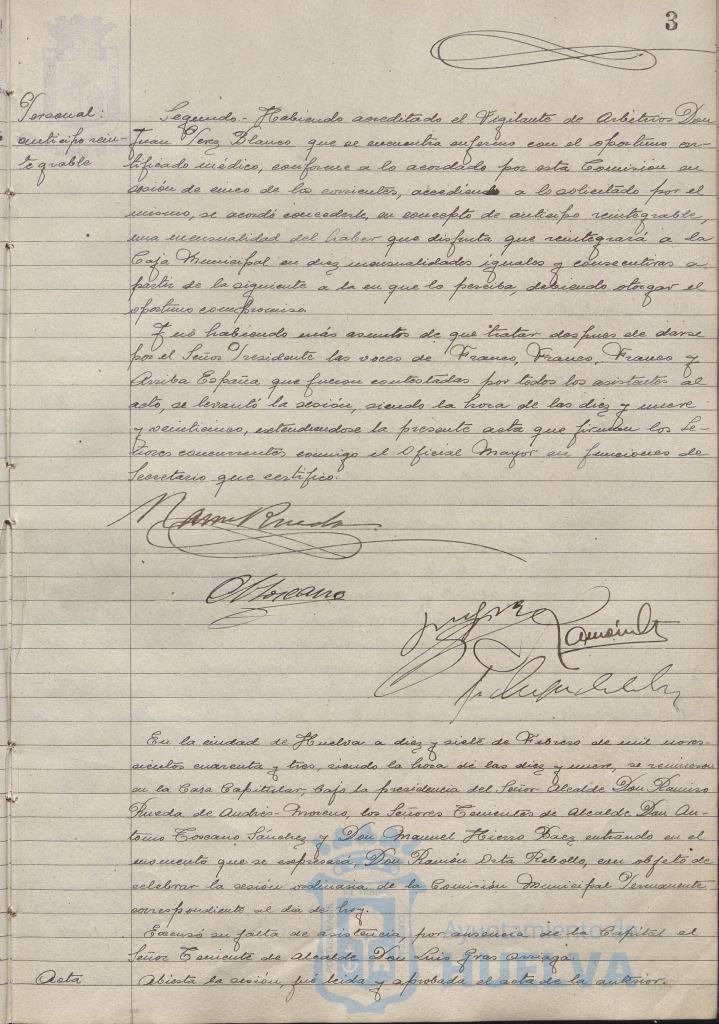 3
Personal:
anticipo rein-
tegrable
Segundo.- Habiendo acreditado el Vigilante de Arbitrios Don
Juan Perez Blanco que se encuentra enfermo con el oportuno cer-
tificado médico, conforme a lo acordado por esta Comisión en
sesión de cinco de los corrientes, accediendo a lo solicitado por el
mismo, se acordó concederle, en concepto de anticipo reintegrable,
una mensualidad del haber que disfruta que reintegrará a la
Caja Municipal en diez mensualidades iguales y consecutivas a
partir de la siguiente a la en que la perciba, debiendo otorgar el
oportuno compromiso.
Y nó habiendo más asuntos de que tratar despues de darse
por el Señor Presidente las voces de Franco, Franco, Franco y
Arriba España que fueron contestadas por todos los asistentes al
acto, se levantó la sesión, siendo la hora de las diez y nueve
y veinticinco, extendiendose la presente acta que firman los Se-
ñores concurrentes conmigo el Oficial Mayor en funciones de
Secretario que certifico.
Rueda
Toscano
Ramón
En la ciudad de Huelva a diez y siete de Febrero de mil nove-
cientos cuarenta y tres, siendo la hora de las diez y nueve, se reunieron
en la Casa Capitular, bajo la presidencia del Señor Alcalde Don Ramiro
Rueda de Andrés-Moreno, los Señores Tenientes de Alcalde Don An-
tonio Toscano Sánchez y Don Manuel Hierro Baez entrando en el
momento que se expresará, Don Ramón Orta Rebollo, con objeto de
celebrar la sesión ordinaria de la Comisión Municipal Permanente
correspondiente al dia de hoy.
Excusó su falta de asistencia, por ausencia de la Capital el
Señor Teniente de Alcalde Don Luis Gras Arriaga.
Acta
Abierta la sesión, fué leida y aprobada el acta de la anterior.
Ayuntamiento de
HUELVA